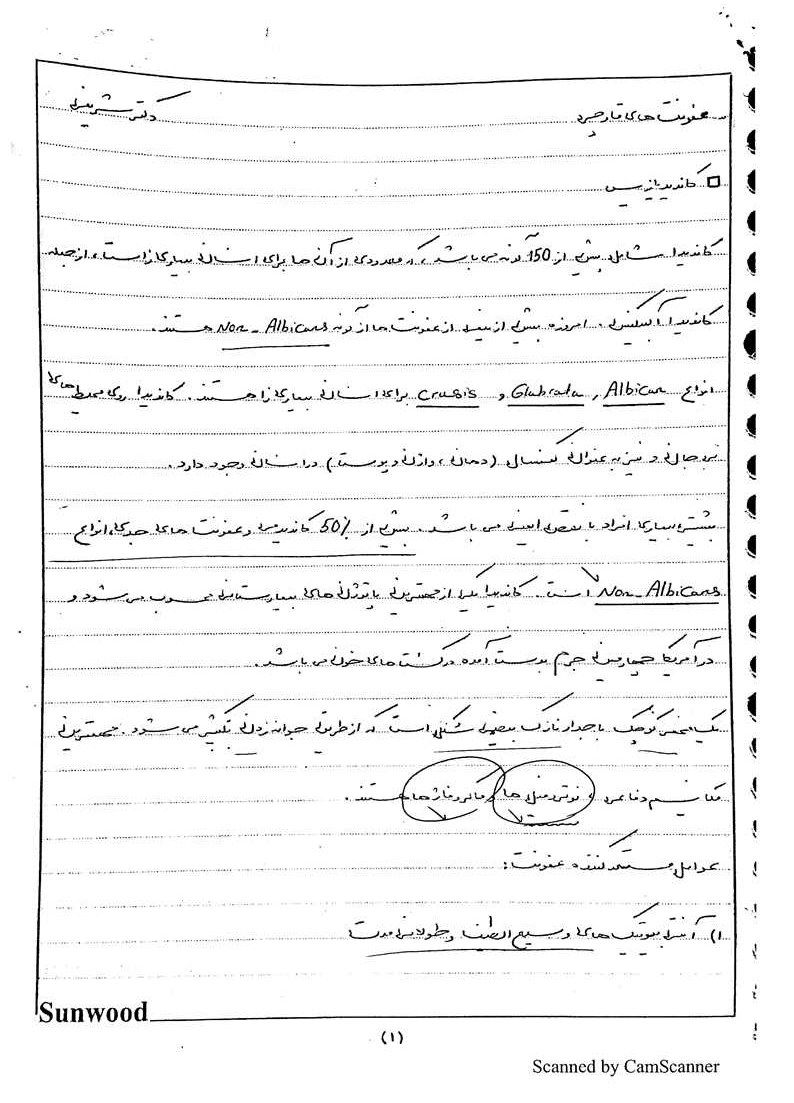 عفونت های قارچی دکتر شریفی
کاندیدیازیس
کاندیدا شامل بیش از 150 گونه می باشد که معدودی از آن ها برای انسان بیماری زا است، از جمله
کاندیدا آلبیکنس. امروزه بیش از نیمی از عفونت ها از گونه Non-Albicans هستند.
انواع Albican, Glabrada و crusis برای انسان بیماری زا هستند. کاندیدا روی محیط های
بی جان و نیز به عنوان کمنسال (دهان، واژن و پوست) در انسان وجود دارد.
بیشتر بیماری افراد با نقص ایمنی می باشد. بیش از 50% کاندیدمی و عفونت های جدی، انواع
Non-Albicans است. کاندیدا یکی از مهمترین پاتوژن های بیمارستانی محسوب می شود و
در آمریکا چهارمین جرم بدست آمده در کشت های خونی می باشد.
یک مخمر کوچک با جدار نازک بیضی شکل است که از طریق جوانه زدن تکثیر می شود. مهمترین
مکانیسم دفاعی، نوتروفیل ها و ماکروفاژها هستند.
عوامل مستعد کننده عفونت:
۱) آنتی بیوتیک های وسیع الطیف و طولانی مدت
Sunwood
(۱)
Scanned by CamScanner